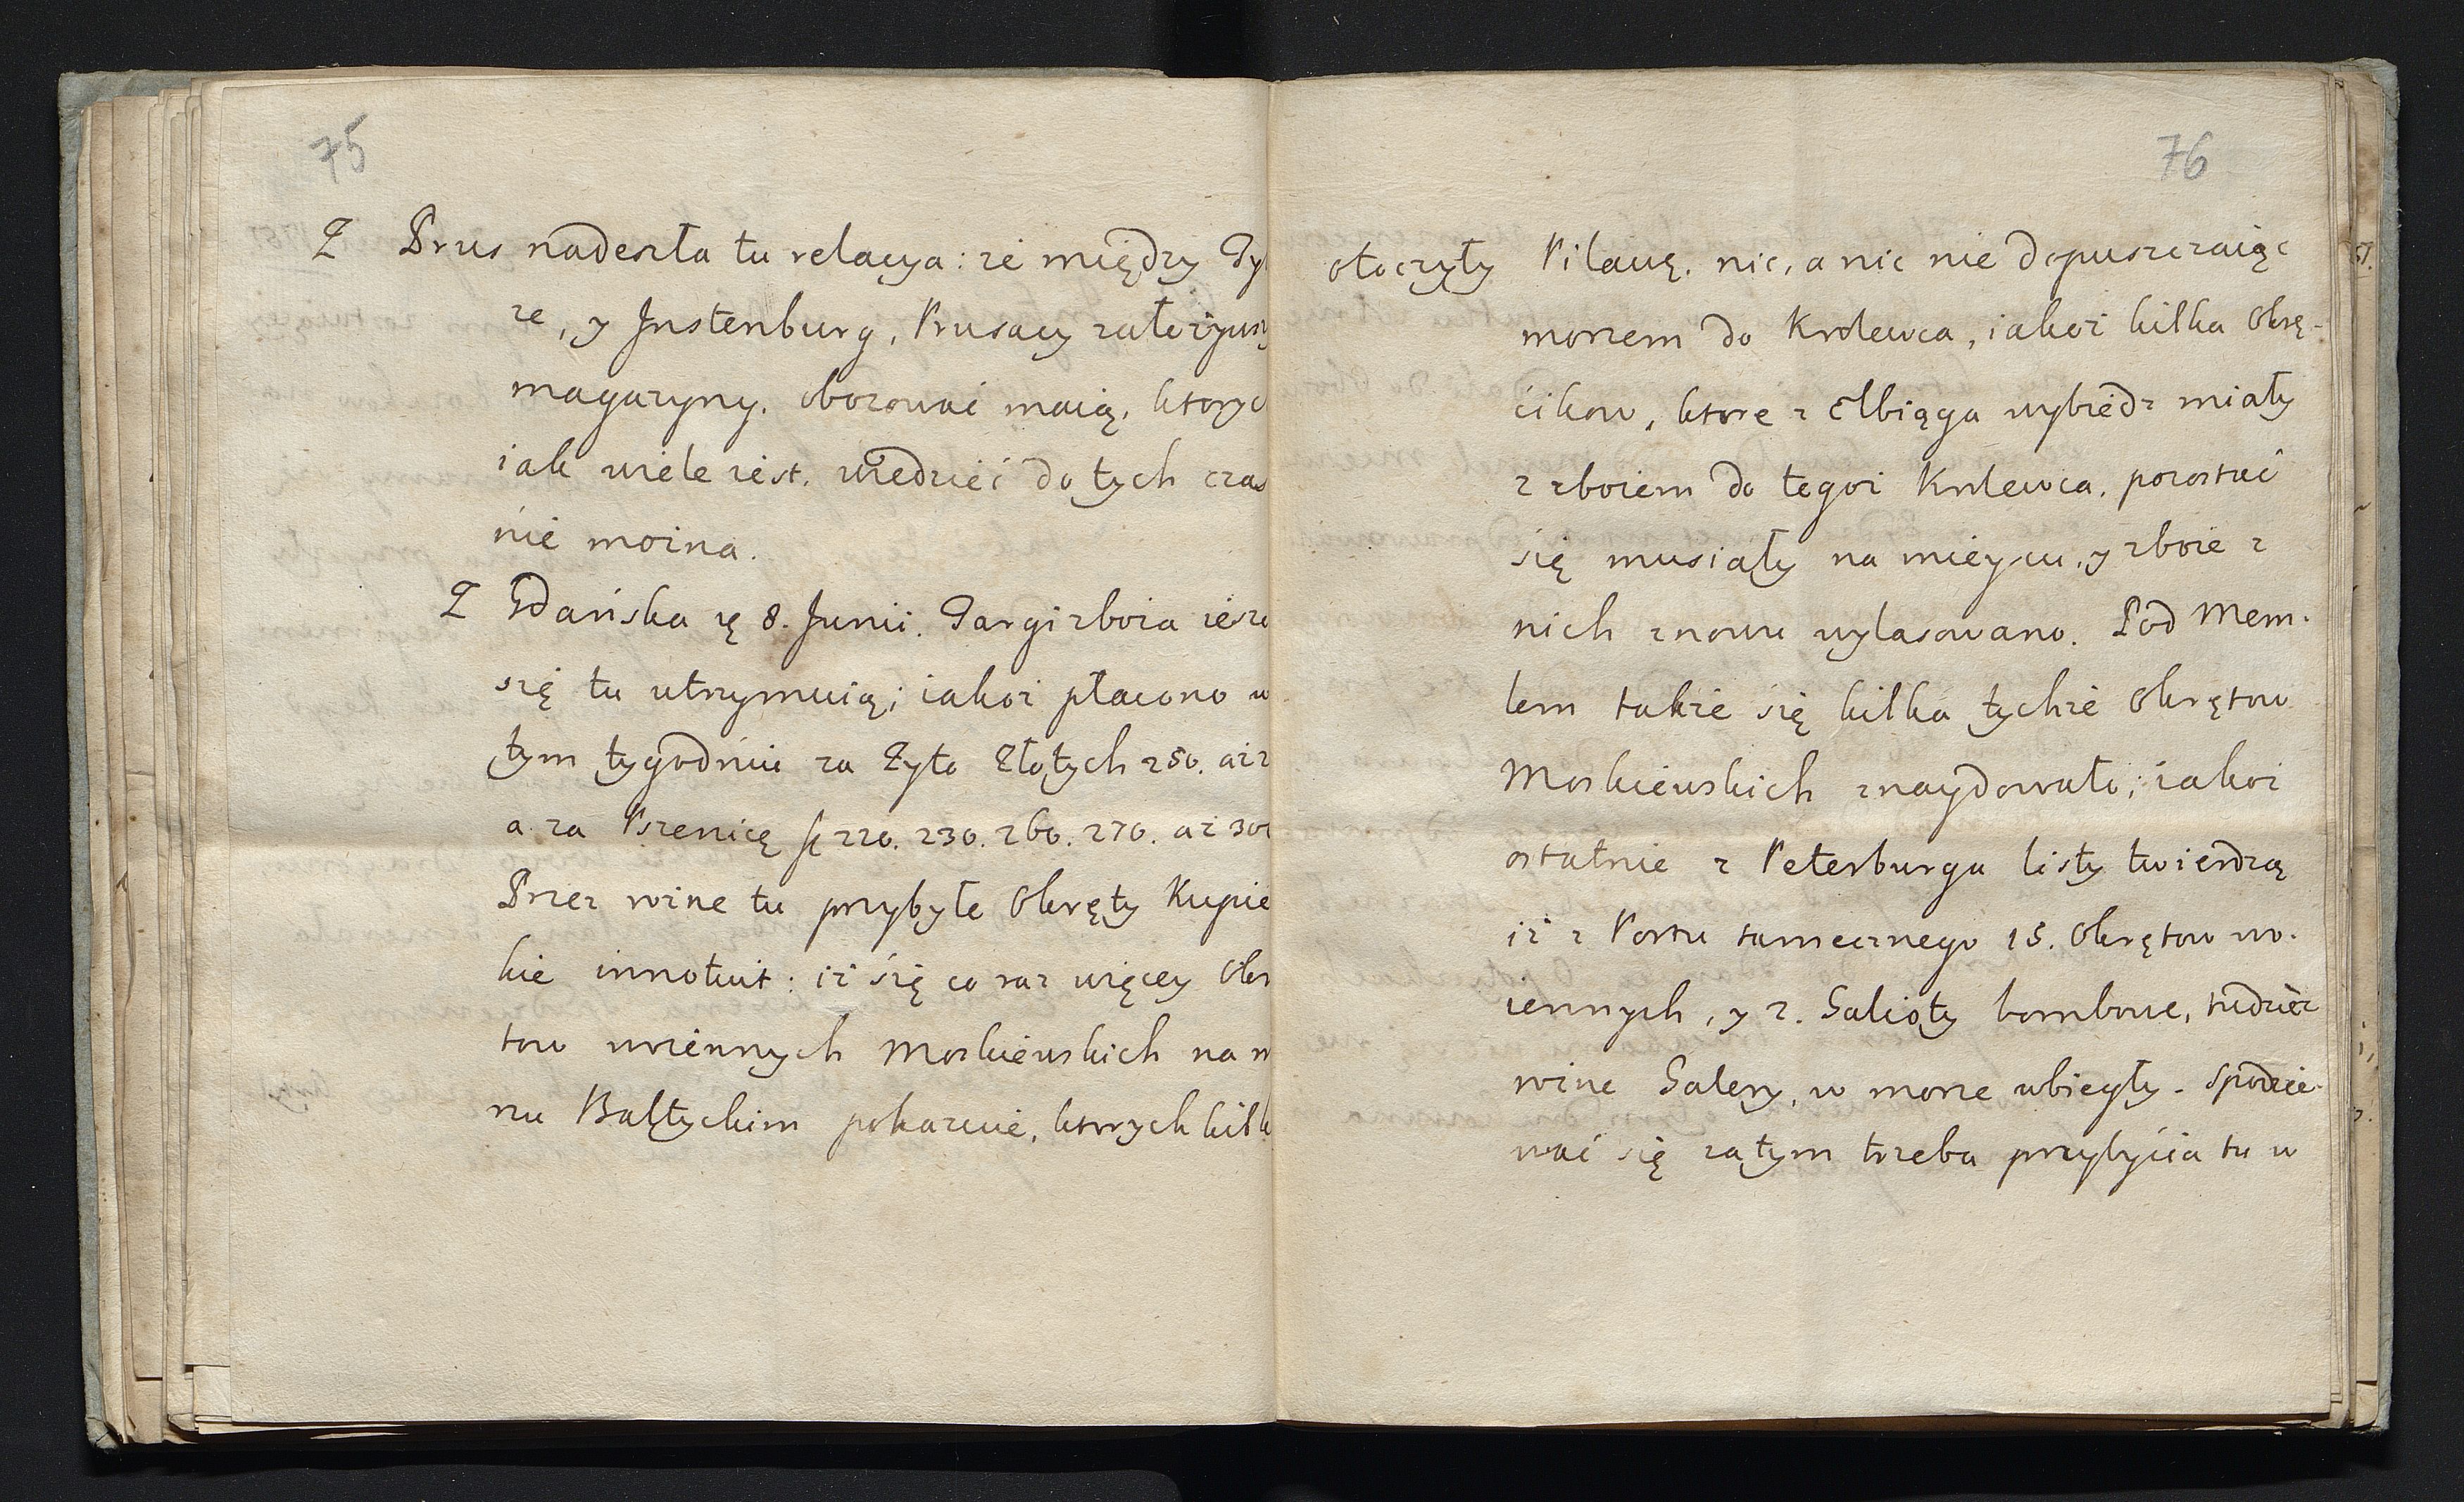 75
Z Prus nadeszła tu relacya: że między Tyl
że, y Instenburg, Prusacy założywszy
magazyny, obozować maią, ktorych
iak wiele iest, wiedzieć do tych czas
nie można.
Z Gdańska 8. Junii. Targi zboża iesz
się tu utrzymuią; iakoż płacono w
tym tygodniu za Żyto Złotych 250. aż
a za Pszenicę fl 220. 230. 260. 270. aż
Przez rożne tu przybyłe Okręty Kupie
kie innotuit: iż się co raz więcey Okr
tow woiennych Moskiewskich na m
rzu Baltyckim pokazuie, ktorych kilk
76
otoczyły Pilawę, nic, a nic nie dopuszczaiąc
morzem do Krolewca, iakoż kilka Okrę-
cikow, ktore z Elbiąga wybiedz miały
z zbożem do tegoż Krolewca, pozostać
się musiały na mieyscu, y zboże z
nich znowu wylasowano. Pod Mem-
lem także się kilka tychże Okrętow
Moskiewskich znaydowało; iakoż
ostatnie z Peterburga listy twierdzą
iż z Portu tamecznego 15. Okrętow wo-
iennych, y 2. Galioty bombowe, tudzież
rożne Galery, w morze wbiegły. Spodzie-
wać się zatym trzeba przybyćia tu w